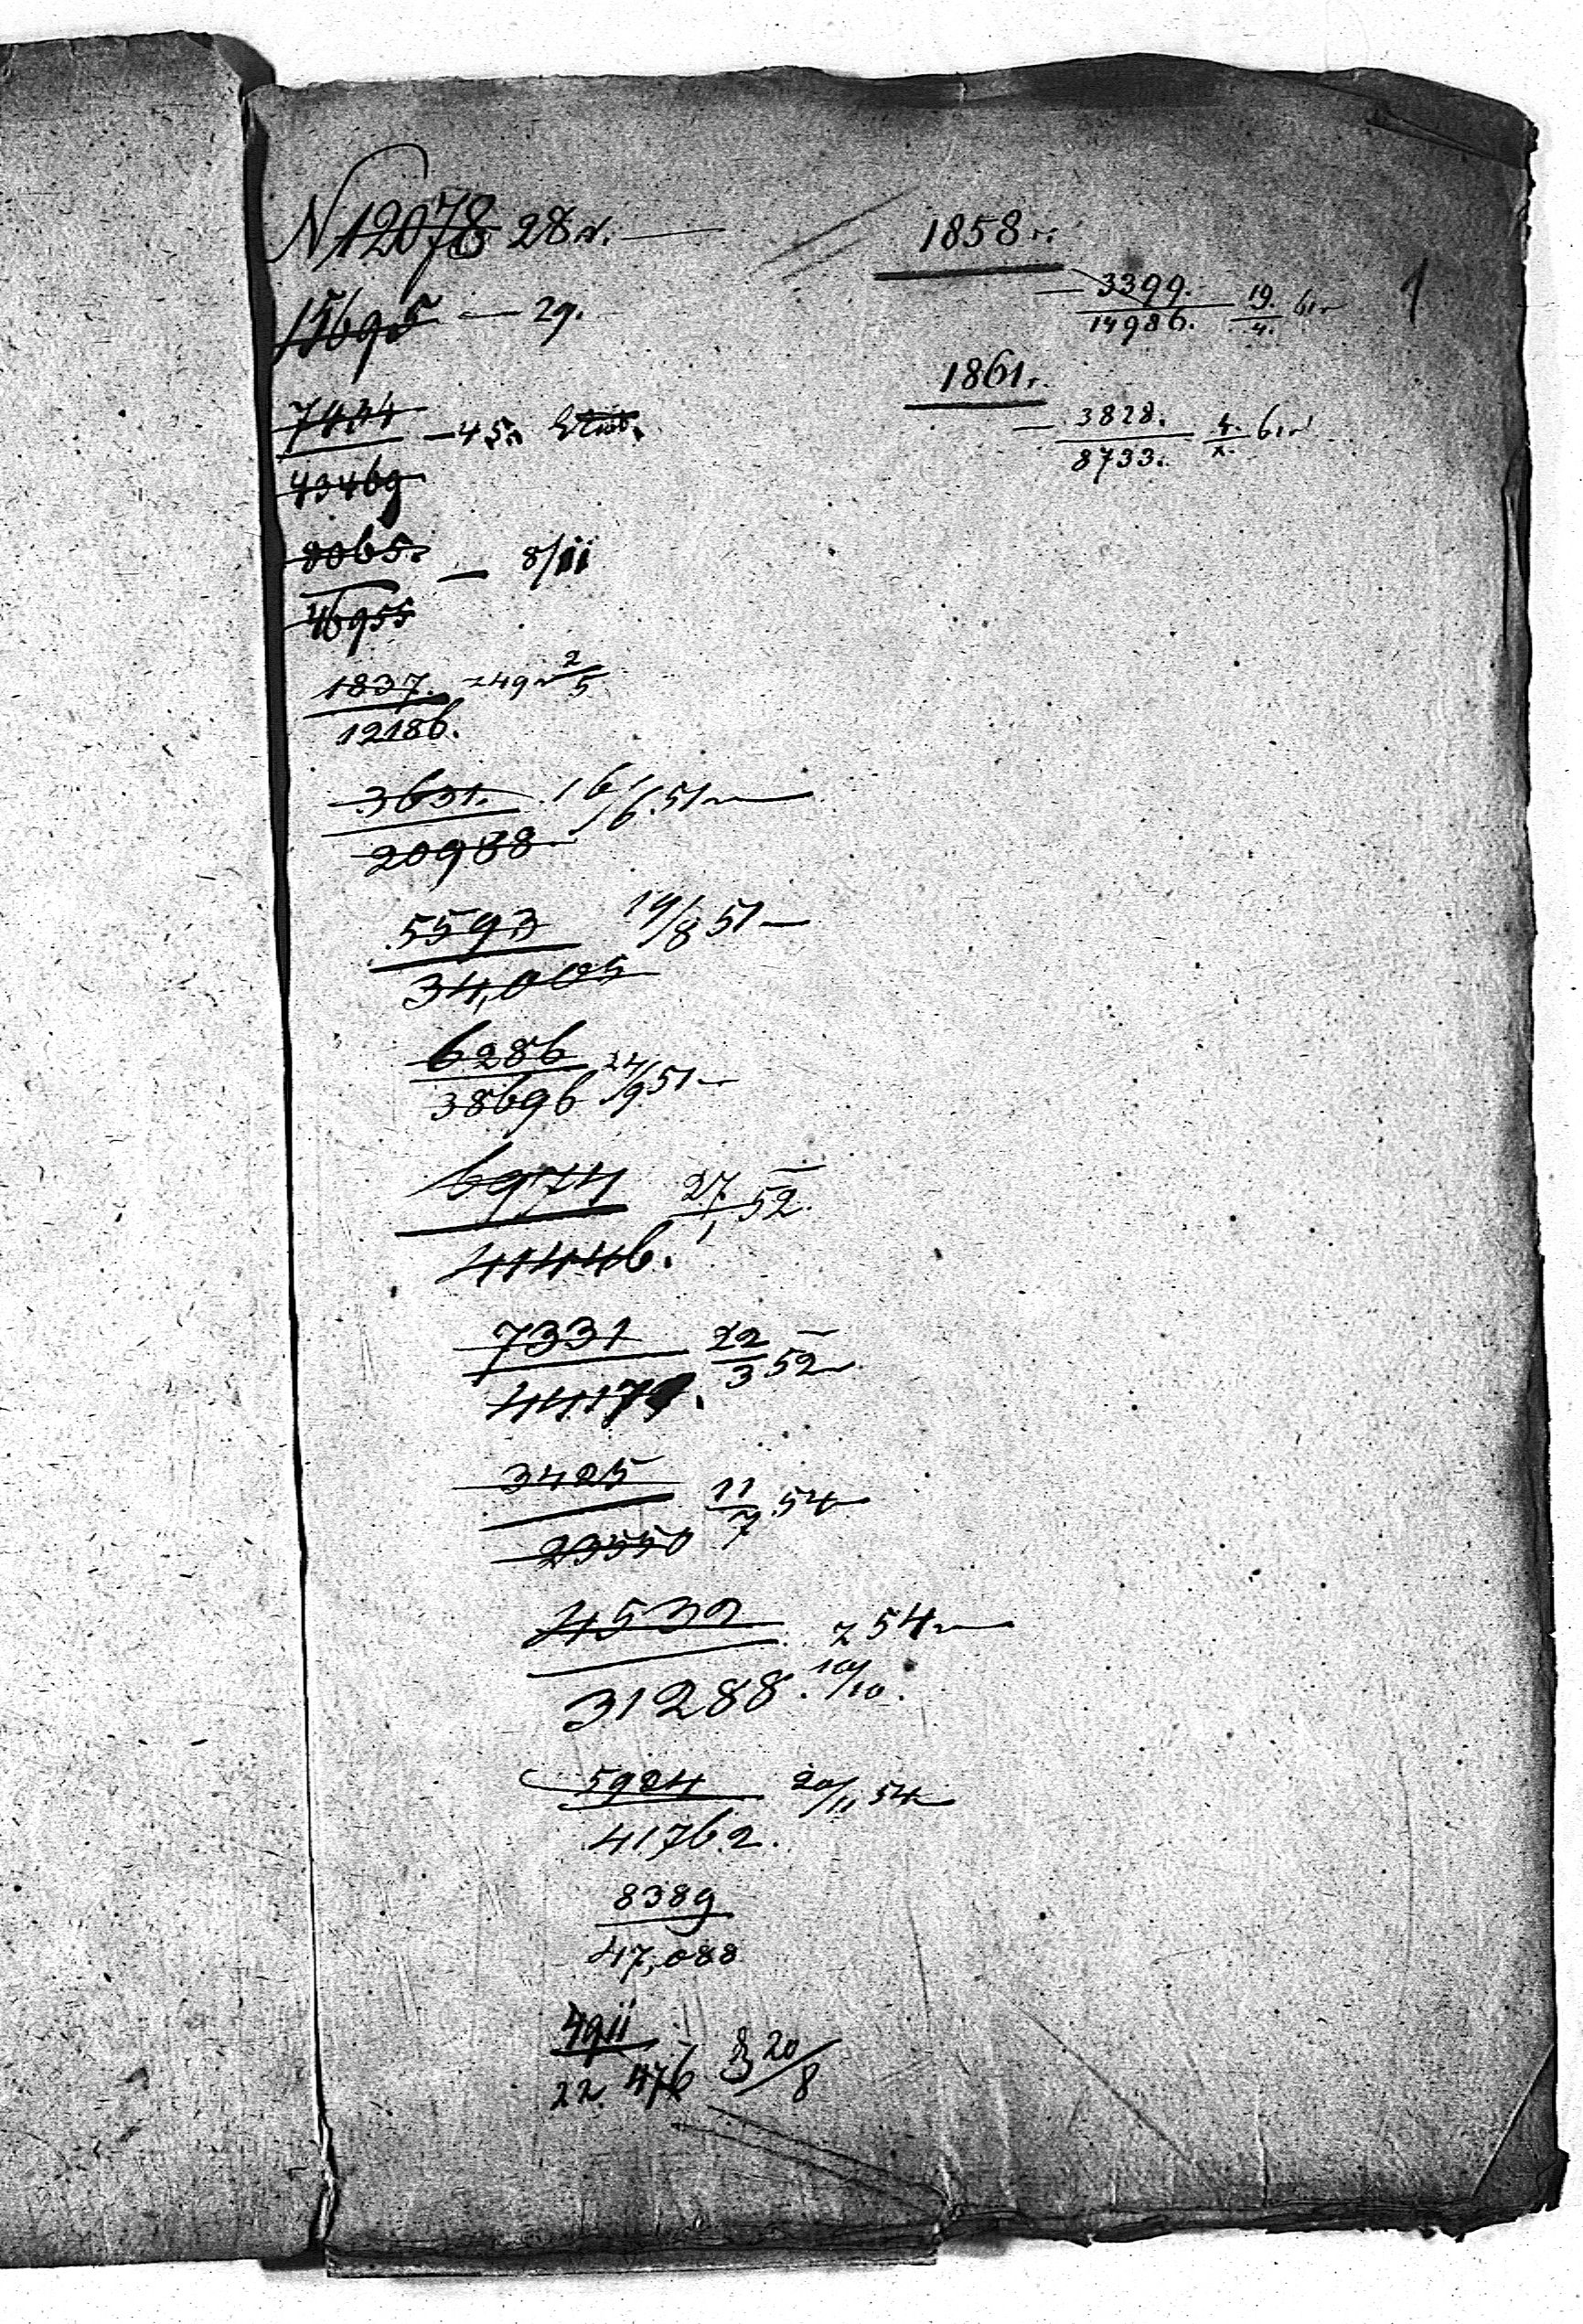 N 12078 28 r.
15695 — 29.
7434
— 45r
43469
8065.
— 8/ii
46955
1837. z 49 r 2/5
12186.
3631. 16/6 51 r
20938
5593 19/8 51
34,005
6286 24/9 51
38696
6974 27/1 52.
41446.
7331 22/3 52 r
44171.
3425 11/7 54
23550
4532 z 54 r
31288. 10/10.
5924 20/11 54
41762.
8389
47,088
4911
22.476 20/8
1858 r.
— 3399. 19./4. 61 r
14986.
1861 r.
— 3828. 61 r
8733.
1